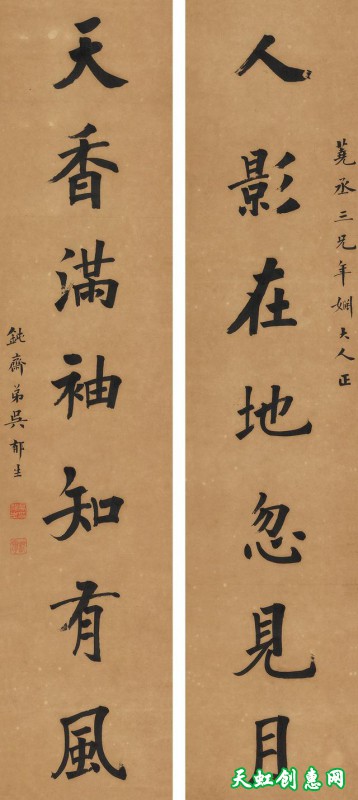 堯丞三兄年姻大人正
人影在地忽見月
天香滿袖知有風
鈍齋弟吳郁生
天虹创惠网